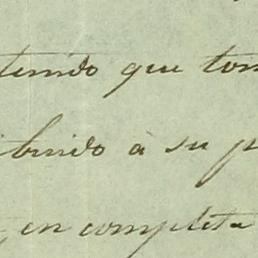 tenido que tom
buido à su p
, en completa